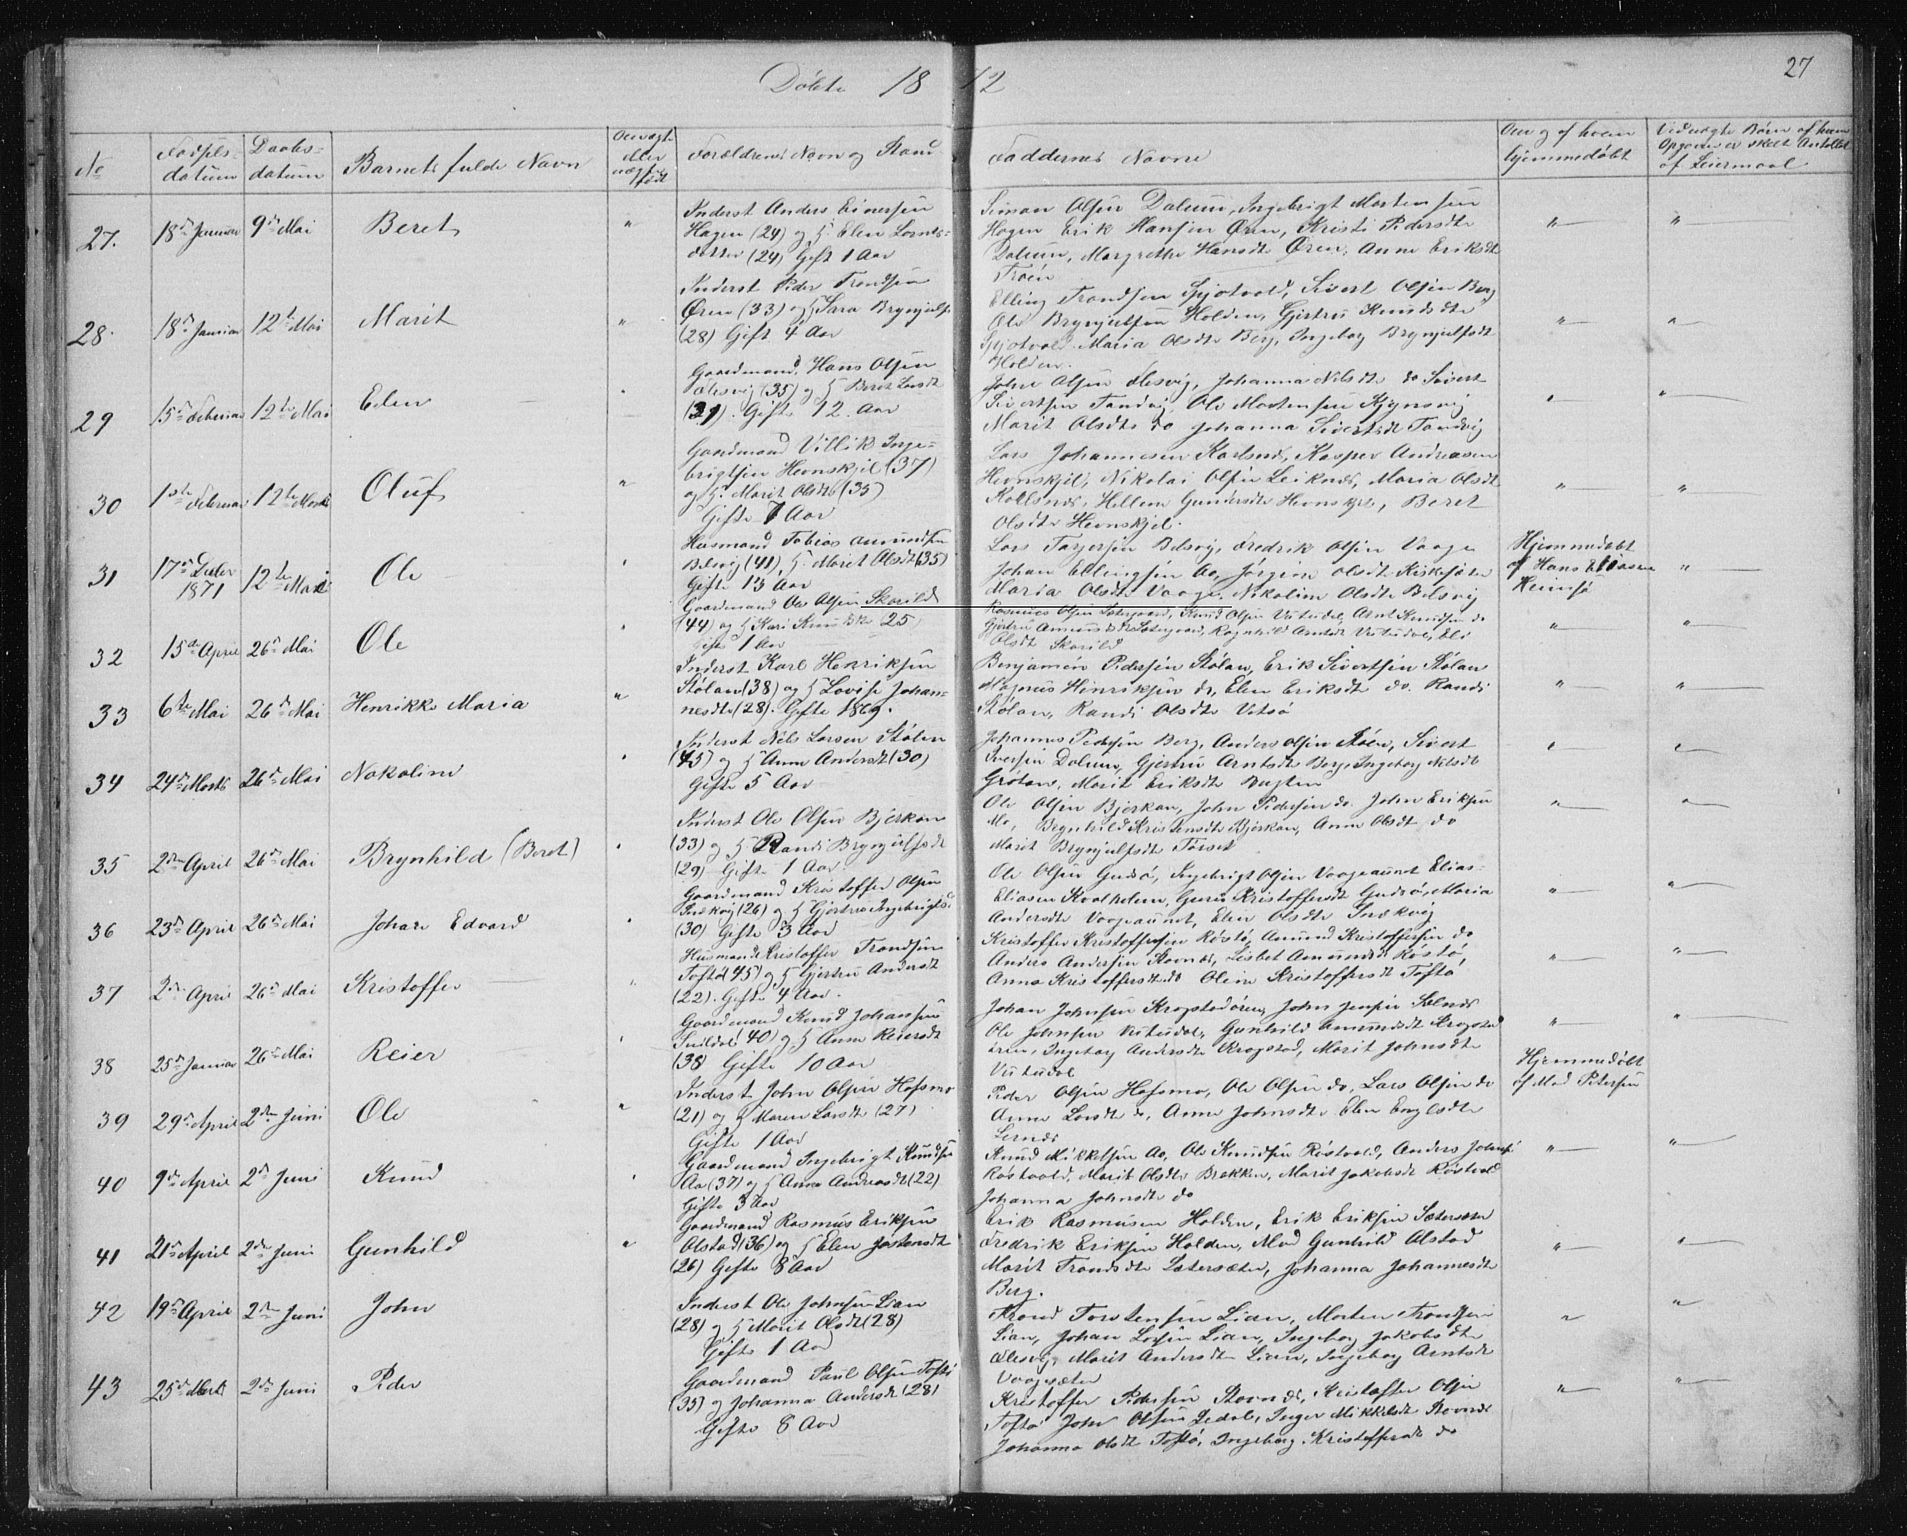 Döbte 18 12
27
No
Fødsels-
datum
Daabs-
datum
Barnets fulde Navn
eller
født
Forældrenes Navn og Stand
Faddernes Navne
Om og af hvem
hjemmedøbt
Vid uægte Børn af hvem
Opgaven er skeet Antallet
af Leiermaal
27. 18de Januar 9de Mai Beret "
Inderst Anders Einersen
Hagen (24) og H Elen Lornts-
datter (24) Gift 1 Aar
Simon Olsen Dalum, Ingebrigt Mortensen
Hagen Erik Hansen Øren, Kristi Pedersdtr
Dalum, Margrethe Hansdt Øren, Anne Eriksdtr
Troen
" "
28. 18de Januar 12te Mai Marit "
Inderst Peder Trondsen
Øren (33) og H Sara Brynjulfs
(28) Gift 4 Aar
Elling Trondsen Gjøtvold, Sivert Olsen Berg
Ole Brynjulfsen Holden, Gjertru Knudsdtr
Gjøtvold Maria Olsdtr Berg, Ingebor Brynjulfsdt
Holden.
" "
29 15de Februar 12te Mai Elen
Gaardmand Hans Olsen
Ælesvig (35) og H Beret Larsdt
Gifte 12 Aar
John Olsen Ælesvig, Johanna Nilsdtr do Sivert
Sivertsen Tandvig, Ole Mortensen Kjynsvig
Marit Olsdtr do Johanna Sivertsdt Tandvig
" "
30 1ste Februar 12te Oluf "
Gaardmand Villik Inge-
brigtsen Hevnskjel (37)
og H. Marit Olsdtr (35)
Gifte 7 Aar
Lars Johannesen Karlsnes, Kasper Andreasen
Hevnskjel, Nikolai Olsen Leiknes, Maria Olsdt
Hellem Gundersdtr Hevnskjel, Beret
Olsdtr Hevnskjel.
" "
31 17de
1871 12te Ole
Husmand Tobias Amundsen
Belsvig (41), H. Marit Olsdt (35)
Gifte 13 Aar
Lars Belsvig, Fredrik Olsen Vaage
Johan Ellingsen Aa, Jørgine Olsdt
Maria Olsdt Vaage, Nikoline Olsdt Belsvig
Hjemmedøbt
af Hans Eliasen
Heimsø
"
32 15de April 26de Mai Ole
Gaardmand Ole Olsen Skarild
(44) og H Kari Knudsdt (25)
Gifte 1 Aar
Rasmus Olsen, Knud Olsen Vutudal, Arnt Knudsen do
Gjertru Amundsdt, Ragnhild Arntdt Vutudal, Eli
Olsdt Skarild
" "
33 6te Mai 26de Mai Henrikke Maria "
Inderst Karl Henriksen
Stølan (38) og H Lovise Johan-
nesdtr (28). Gifte 1869.
Benjamin Pedersen Stølan, Erik Sivertsen Stølan
Magnus Hinriksen do, Elen Eriksdt do. Randi
Stølan, Randi Olsdtr Vitsø
" "
34 24de Marts 26de Mai Nokoline
Inderst Nils Larsen Stølen
(45) og H Anne Andersdt (30)
Gifte 5 Aar
Johannes Pedersen Berg, Anders Olsen Moen, Sivert
Iversen Dalum, Gjertru Arntsdt Berg, Ingebor Nilsdt
Grøtan, Marit Eriksdt
" "
35 2den April 26de Mai Brynhild (Beret)
Inderst Ole Olsen Bjerkan
(33) og H Randi Brynjulfsdt
(29) Gifte 1 Aar
Ole Olsen Bjerkan, John Pedersen do. John Eriksen
Mo, Brynhild Kristensdtr Bjerkan, Anne Olsdt do
Marit Brynjulfsdt Torset
" "
36 23de April 26de Mai Johan Edvard
Gaardmand Kristoffer Olsen
Snekvig (26) og H Gjertru Ingebrigts.
(30) Gifte 3 Aar
Ole Olsen Gudsø, Ingebrigt Olsen Vaageaunet Elias
Eliasen Kvalholm, Guru Kristoffersdt Gudsø, Maria
Andersdt Vaageaunet, Elen Olsdtr Snekvig
" "
37 2den April 26de Mai Kristoffer
Husmand Kristoffer Trondsen
Toftø (45) og H Gjertru Andersdt
(22). Gifte 4 Aar.
Kristoffer Kristoffersen Røstø, Amund Kristoffersen do
Anders Andersen Stovnes, Lisbet Amundsdt Røstø,
Anna Kristoffersdt do Oline Kristoffersdt Toftø
" "
38 25de Januar 26de Mai Reier
Gaardmand Knud Johansen
Snildal (40) og H Anne Reiersdt
(38) Gifte 10 Aar
Johan Johnsen Krogstadøren, John Jensen Selnes
Ole Johnsen Vutudal, Gunhild Amundsdt Krogstad
øren, Ingebor Andersdt Krogstad, Marit Johnsdtr
Vutudal
" "
39 29de April 2den Juni Ole "
Inderst John Olsen Hofsmo
(21) og H Maren Larsdt (27)
Gifte 1 Aar
Peder Olsen Hofsmo, Ole Olsen do, Lars Olsen do
Anne Larsdt do, Anne Johnsdtr Elen Englsdtr
Lernes
Hjemmedøbt
af Mad Petersen
40 9de April 2de Juni Knud
Gaardmand Ingebrigt Knudsen
Aa (37) og H Anna Andreasdt (22)
Gifte 3 Aar
Knud Mikkelsen Aa, Ole Knudsen Røstvold, Anders Johnsen
Røstvold, Marit Olsdtr Brekken, Marit Jakobsdt Røstvold
Johanna Johnsdtr do
" "
41 21de April 2den Juni Gunhild "
Gaardmand Rasmus Eriksen
Olstad (36) og H Elen Jostensdt
(26) Gifte 8 Aar
Erik Rasmusen Holden, Erik Eriksen Sætersæter
Fredrik Eriksen Holden, Mad Gunhild Olstad
Marit Trondsdtr Sætersæter, Johanna Johannesdtr
Berg.
" "
42 19de April 2den Juni John
Inderst Ole Johnsen Lian
(28) og H Marit Olsdt (28)
Gifte 1 Aar
Trond Torstensen Lian, Morten Trondsen
Lian, Johan Larsen Lian, Ingebor Jakobsdtr
Ælesvig, Marit Andersdtr Lian, Ingebor Arntsdt
Vaagsæter
" "
43 25de Marts 2de Juni Peder
Gaardmand Paul Olsen Toftø
(35) og Johanna Andersdt (28)
Gifte 8 Aar
Kristoffer Pedersen Stovnes, Kristoffer Olsen
Toftø John Olsen Dedal, Inger Mikkelsdt Stovnes
Johanna Olsdt Toftø, Ingeborg Kristoffersdt do
" "